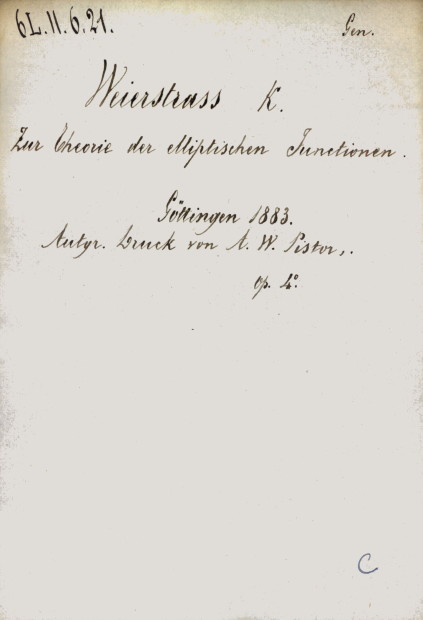 6L.11.6.21.
Gen.
Weierstrass K.
Zur Theorie der elliptischen Functionen.
Göttingen 1883.
Autgr. Druck von A. W. Pistor,.
op. 4°.
C